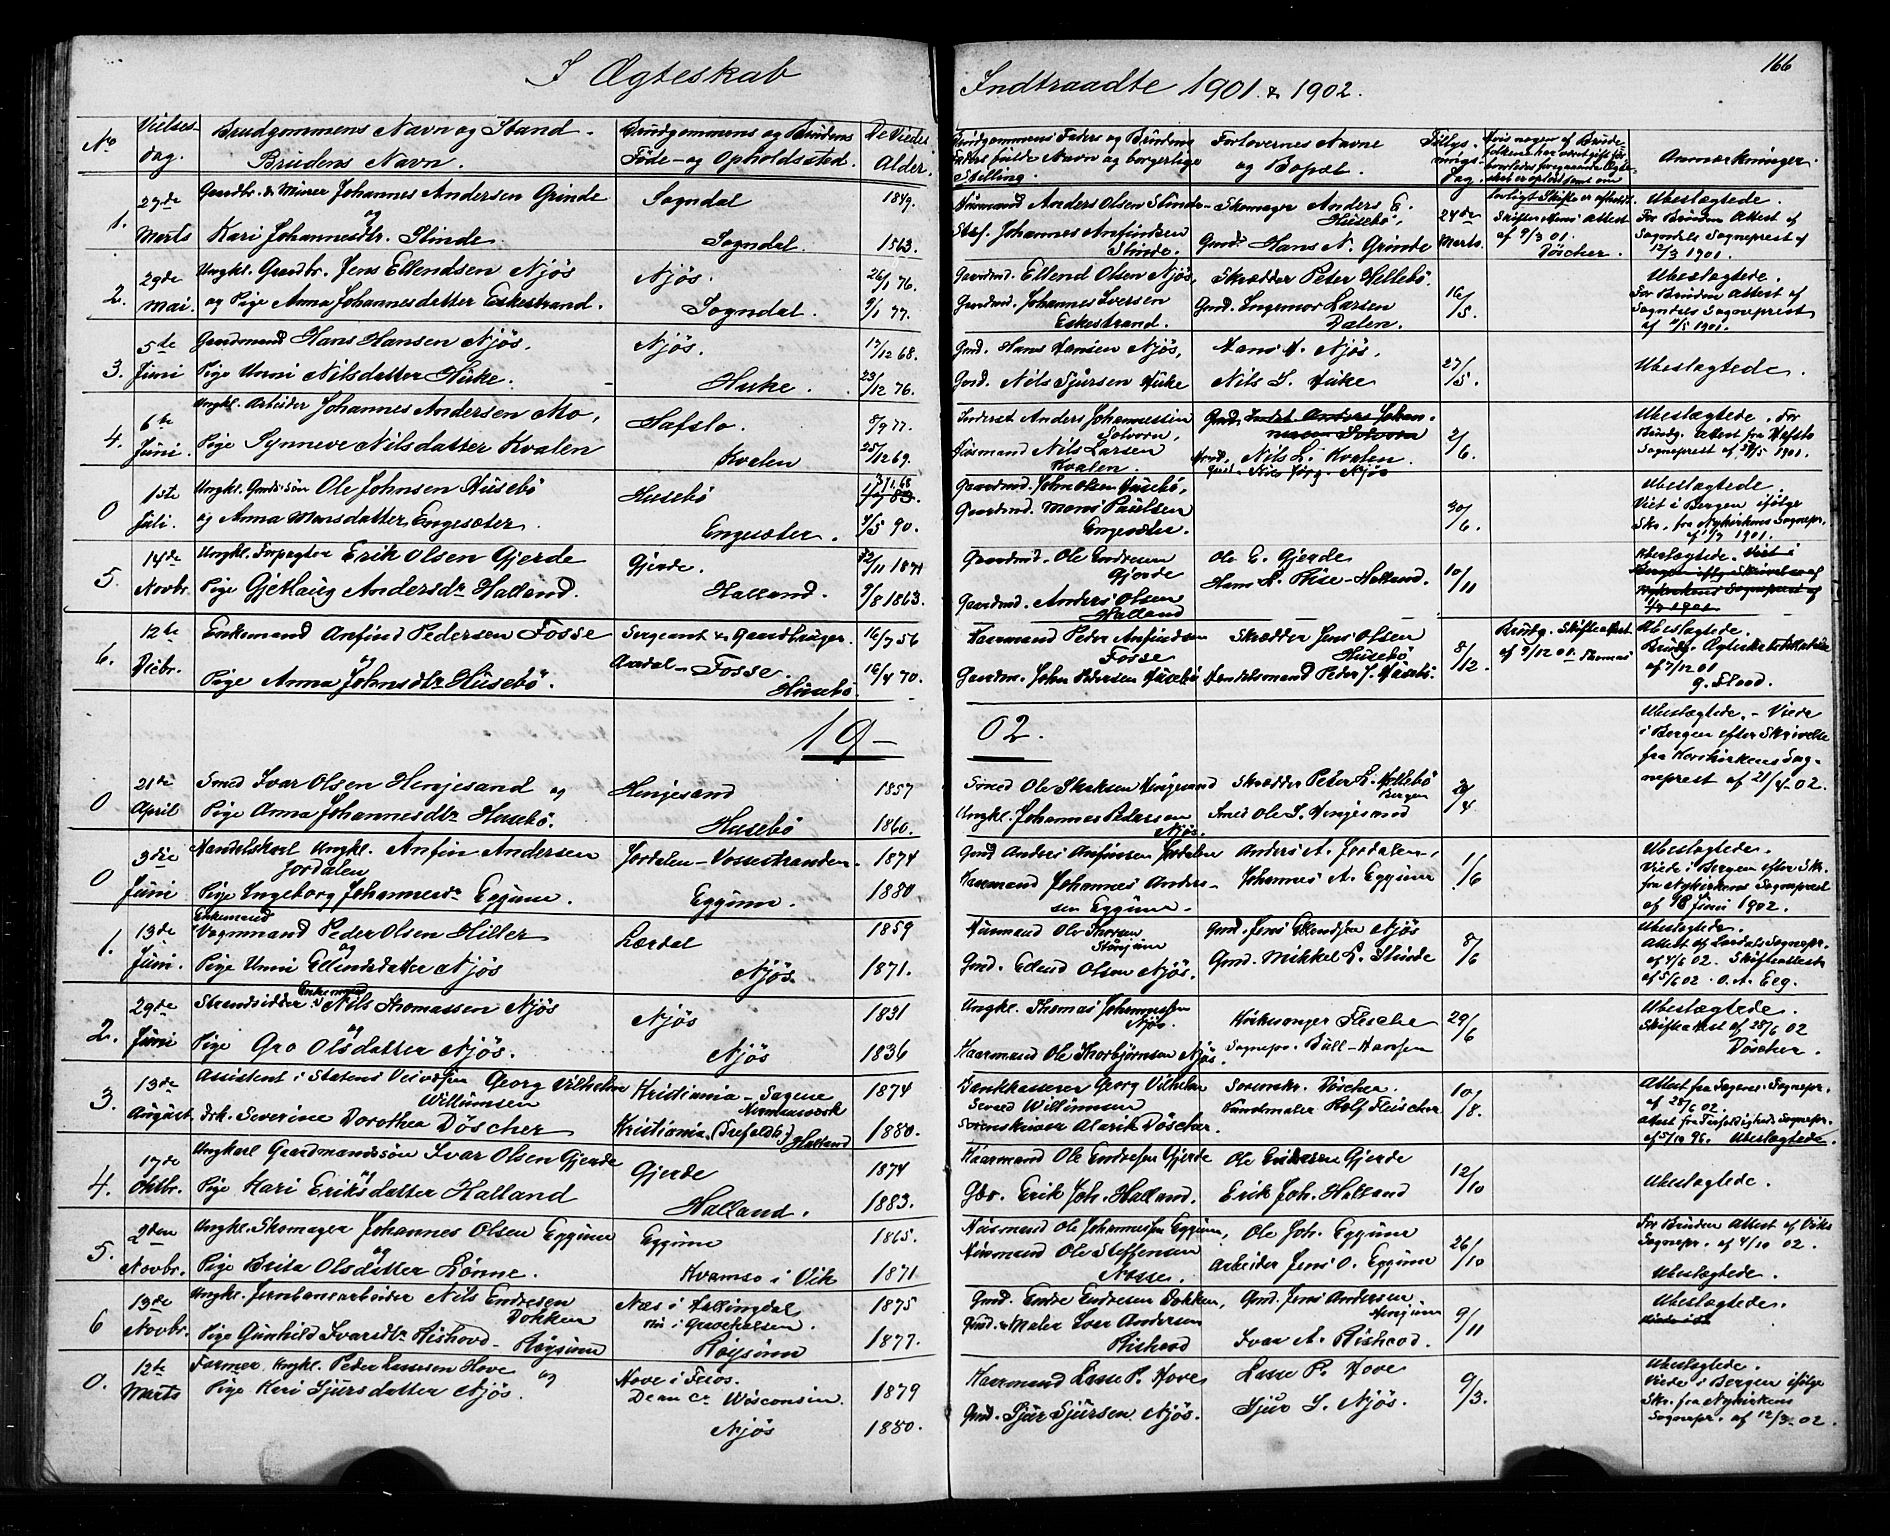 I Ægteskab
Indtraadte 1901 & 1902.
166
No
Vielses-dag.
Brudgommens Navn og Stand.
Brudens Navn.
Brudgommens og Brudens
Føde- og Opholdssted.
De Viedes
Alder.
Brudgommens Faders og Brudens
Faders fulde Navn og borgerlige
Stilling.
Forlovernes Navne
og Bopæl.
Anmærkninger.
1.
29de
Marts
Gaardbr. & Minør Johannes Andersen Grinde
og
Kari Johannesdtr. Slinde
Sogndal
Sogndal.
1849.
1863.
Husmand Anders Olsen Slinde
Johannes Anfindsen
Slinde.
Skomager Anders E.
Husebö,
Gmd. Hans N. Grinde
24de
Marts.
Skifter Attest
af 9/3 01.
Döscher.
Ubeslægtede.
For Bruden Attest af
Sogndals Sogneprest af
12/3 1901.
2.
29de
Mai.
Ungkl. Gaardbr. Jens Ellendsen Njös
og Pige Anna Johannesdatter Eskestrand.
Njös.
Sogndal.
26/1 76.
9/1 77.
Gaardmd. Ellend Olsen Njös,
Gaardmd. Johannes Iversen
Eskestrand.
Skrædder Peter Hillebö.
Gmd. Ingemor Larsen
Dalen.
16/5.
Ubeslægtede.
For Bruden Attest af
Sogndals Sogneprest
af 11/5 1901.
3.
5te
Juni
Gaardmand Hans Hansen Njös.
Pige Unni Nilsdatter Huke.
Njös.
Huke.
17/12 68.
23/12 76.
Gmd. Hans Hansen Njös,
Gmd. Nils Sjursen Huke
Hans H. Njös.
Nils S. Huke
27/5.
Ubeslægtede.
4.
6te
Juni.
Ungkl. Arbeider Johannes Andersen Mo,
Pige Synneve Nilsdatter Kvalen
Hafslo.
Kvalen
8/9 77.
25/12 69.
Inderst Anders Johannessen
Solvorn,
Husmand Nils Larsen
Kvalen.
Gmd. Indst Anders Johan-
nesen Solvorn
Nils L. Kvalen.
Gmd. Nils Jörg. Njös
2/6.
Ubeslægtede. For
Brudg. Attest fra Hafslo
Sogneprest af 28/5 1901.
0
1ste
Juli.
Ungkl. Gmdssön Ole Johnsen Husebö
og Anna Monsdatter Engesæter.
Husebö
Engesæter.
9/5 90.
Gaardmd. John Olsen Husebö,
Gaardmd. Mons Paulsen
Engesæter.
30/6.
Ubeslægtede.
Viet i Bergen ifölge
Skr. fra Nykirkens Sognepr.
af 1/7 1901.
5.
14de
Novbr.
Ungkl. Forpagter Erik Olsen Gjerde
Pige Gjethaug Andersdtr Halland.
Gjerde.
Halland.
22/11 1871
9/8 1863.
Gaardmd. Ole Endresen
Gjerde
Gaardmd. Anders Olsen
Halland
Ole E. Gjerde
Hans H. Hise-Halland.
10/11
Ubeslægtede. Viet i
Bergen iflg Skrivelse af
Nykirkens Sogneprest af
1/7 1901
6.
12te
Decbr.
Enkemand Anfind Pedersen Fosse
og
Pige Anna Johnsdtr Husebö.
Sergeant & Gaardbruger.
Aardal-Fosse.
Husebö
16/7 56
16/4 70.
Kaarmand Peder Anfindsen
Fosse
Gaardm. John Pedersen Husebö
Skrædder Jens Olsen
Husebö
Handelsmand Peder J. Husebö.
8/12.
Brudg. Skifteattest
af 9/12 01. Thomas
Ubeslægtede.
af 7/12 01
G. Flood.
19-
02.
0
21de
April
Smed Ivar Olsen Henjesand og
Pige Anna Johannesdtr Husebö.
Henjesand
Husebö
1857
1860.
Ungkl. Johannes Pedersen
Njös.
Skrædder Peter L. Hillebö
Bergen
Smed Ole I. Henjesand
Ubeslægtede. - Viede
i Bergen efter Skrivelse
fra Korskirkens Sog-
neprest af 21/4-02.
0
3die
Juni
Handelskarl Ungkl. Anfin Andersen
Jordalen
Pige Ingeborg Johannesdr Eggum.
Jordalen-Vossestranden
Eggum.
1874
1880.
Gmd Anders Anfinsen Jordalen
Kaarmand Johannes Anders-
sen Eggum.
Anders A. Jordalen,
Johannes A. Eggum
1/6
Ubeslægtede.
Viede i Bergen efter Sk.
fra Nykirkens Sogneprest
af 18 Juni 1902.
1.
13de
Juni.
Enkemand
Vognmand Peder Olsen Hiller
og
Pige Unni Ellendsdatter Njös
Lærdal
Njös.
1859
1871.
Husmand Ole Thorsen
Gmd. Ellend Olsen Njös.
Gmd. Jens Ellendsen Njös
Gmd. Mikkel L. Slinde
8/6
Ubeslægtede.
Attest af Lærdals Sognepr.
af 4/6 02. Skifteattest
af 5/6 02. O. A. Eeg.
2.
29de
Juni
Enkemand
Strandsidder Nils Thomassen Njös
og
Pige Gro Olsdatter Njös.
Njös
Njös
1831
1836
Ungkl. Thomas Johannessen
Njös.
Kaarmand Ole Thorbjörnsen Njös.
Kirkesanger Flesche
Sognepr. Bull-Hansen
29/6
Ubeslægtede.
Skifteattest af 28/6 02
Döscher.
3.
13de
August
Assistent i Statens Veivæsen Georg Vilhelm
Willumsen
Frk. Severine Dorothea Döscher
Kristiania-Sagene
Kristiania. (Trefoldh.) Halland
1874
1880.
Bankkasserer Georg Vilhelm
Svend Willumsen
Sorenskriver Alarik Döscher.
Sorenskr. Döscher.
Landmaler Rolf Fleischer
10/8.
Attest fra Sagenes Sognepr.
af 28/6 02.
Attest fra Trefoldigheds Sognepr.
af 5/10 96. Ubeslægtede.
4.
17de
Oktbr.
Ungkarl Gaardmandssön Ivar Olsen Gjerde
og
Pige Kari Eriksdatter Halland
Gjerde
Halland.
1874
1883.
Kaarmand Ole Endresen Gjerde
Gbr. Erik Joh. Halland.
Ole Endresen Gjerde
Erik Joh. Halland
12/10
Ubeslægtede.
5.
2den
Novbr.
Ungkl. Skomager Johannes Olsen Eggum
og
Pige Brita Olsdatter Lönne.
Eggum
Kvamsö i Vik
1865.
1871.
Husmand Ole Johannessen Eggum,
Husmand Ole Steffensen
Nosse.
Ole Joh. Eggum
Arbeider Jens O. Eggum
26/10
For Bruden Attest af Viks
Sognepr. af 4/10 02.
Ubeslægtede.
6
13de
Novbr.
Ungkl. Jernbanearbeider Nils Endresen
Dokken
Pige Gunhild Ivarsdtr Rishovd-Röysum
Næs i Hallingdal
nu i Gravehalsen.
Röysum
1875
1877.
Gmd. Endre Endresen Dokken,
Gmd.-Maler Iver Andersen
Rishovd
Gmd. Jens Andersen
Henjum
Ivar A. Rishovd.
9/11
Ubeslægtede.
0.
12te
Marts
Farmer, Ungkl. Peder Lassesen Hove og
Pige Kari Sjursdatter Njös.
Hove i Feios.
Dean Co. Wisconsin.
Njös
1879
1880.
Kaarmand Lasse P. Hove
Gmd. Sjur Sjursen Njös.
Lasse P. Hove
Sjur S. Njös.
9/3.
Ubeslægtede.
Viede i Bergen ifölge
Skr. fra Nykirkens
Sognepr. af 12/3-02.